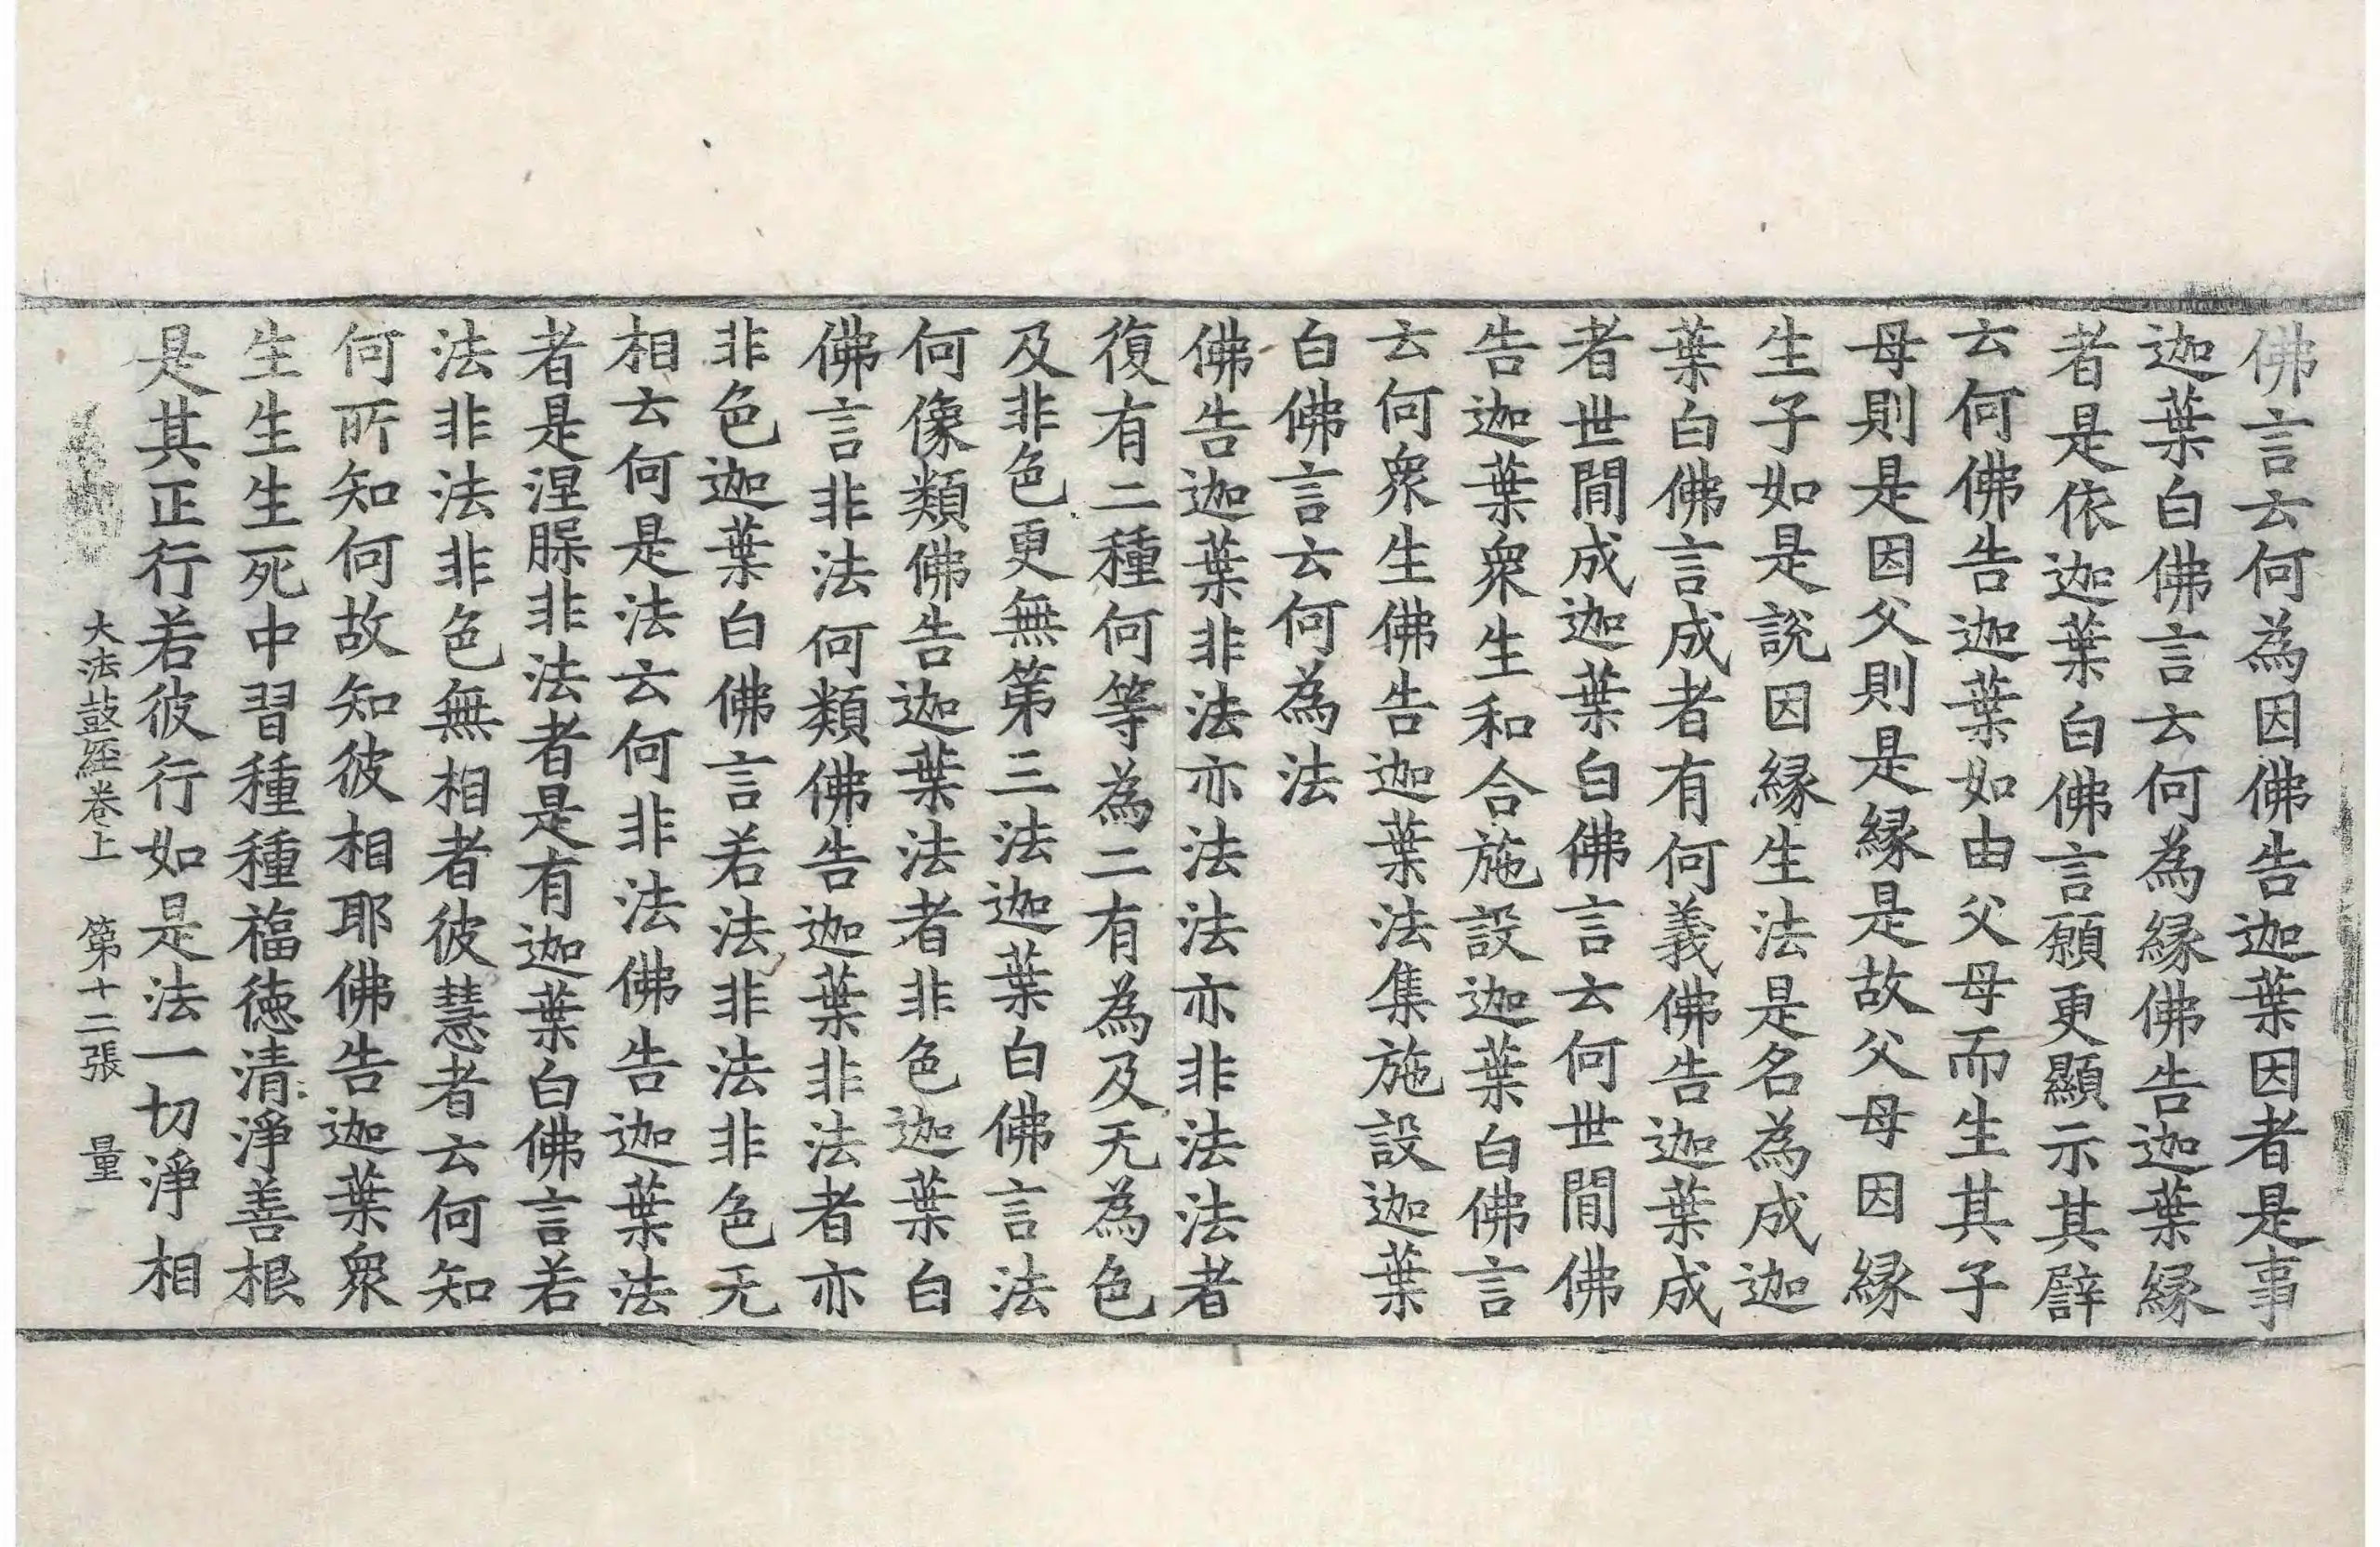 佛言云何為因佛告迦葉因者是事
迦葉白佛言云何為縁佛告迦葉縁
者是依迦葉白佛言願更顯示其譬
云何佛告迦葉如由父母而生其子
母則是因父則是縁是故父母因縁
生子如是說因縁生法是名為成迦
葉白佛言成者有何義佛告迦葉成
者世間成迦葉白佛言云何世間佛
告迦葉衆生和合施設迦葉白佛言
云何衆生佛告迦葉法集施設迦葉
白佛言云何為法
佛告迦葉非法亦法法亦非法法者
復有二種何等為二有為及无為色
及非色更無第三法迦葉白佛言法
何像類佛告迦葉法者非色迦葉白
佛言非法何類佛告迦葉非法者亦
非色迦葉白佛言若法非法非色无
相云何是法云何非法佛告迦葉法
者是涅槃非法者是有迦葉白佛言若
法非法非色無相者彼慧者云何知
何所知何故知彼相耶佛告迦葉衆
生生生死中習種種福德清淨善根
是其正行若彼行如是法一切淨相
大法鼓經卷上　第十二張　量